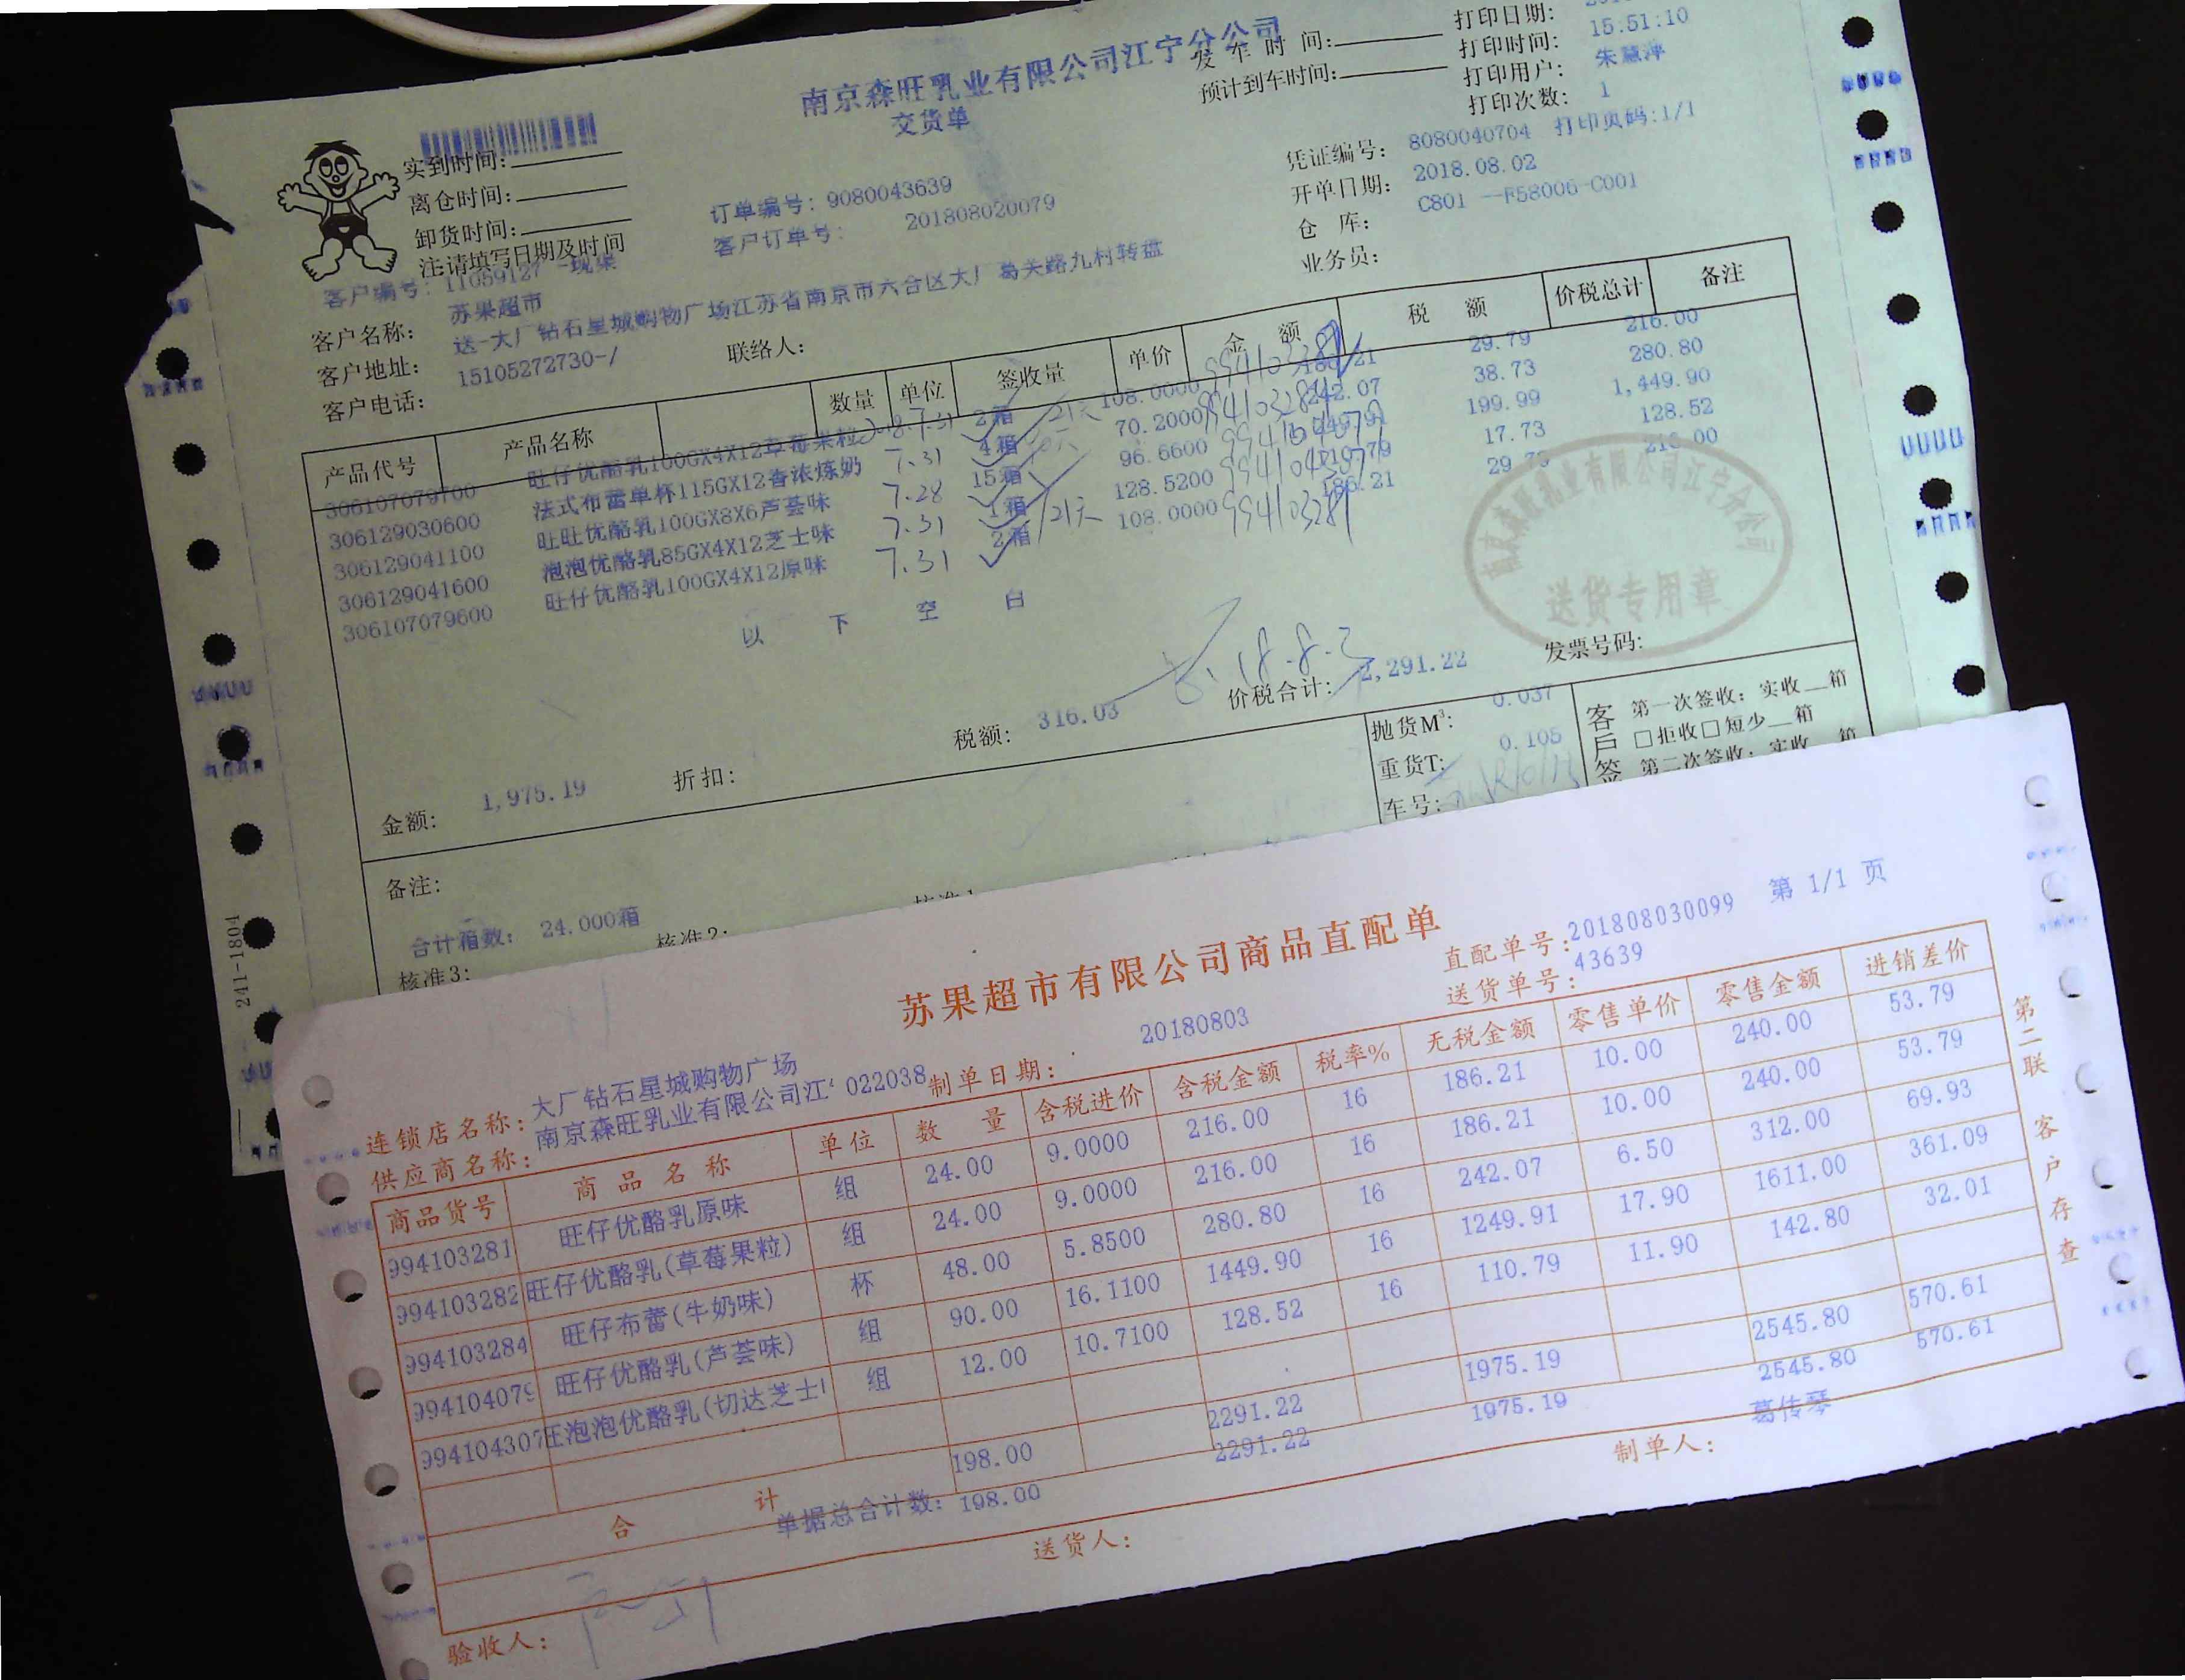 南京森旺乳业有限公司江宁分公司
交货单
发车时间:
预计到车时间:
打印日期:
打印时间: 15:51:10
打印用户: 朱慧萍
打印次数: 1
实到时间:
离仓时间:
卸货时间:
注:请填写日期及时间
订单编号: 9080043639
客户订单号: 201808020079
凭证编号: 8080040704 打印页码:1/1
开单日期: 2018.08.02
仓 库: C801 --F58006-C001
业务员:
客户编号: 11059127 -现渠
客户名称: 苏果超市
客户地址: 送-大厂钻石星城购物广场江苏省南京市六合区大厂葛关路九村转盘
客户电话: 15105272730-/
联络人:
产品代号 产品名称 数量 单位 签收量 单价 金 额 税 额 价税总计 备注
306107079700 旺仔优酪乳100GX4X12草莓果粒 2箱 21天 108.0000 186.21 29.79 216.00
306129030600 法式布蕾单杯115GX12香浓炼奶 7.31 4箱 70.2000 242.07 38.73 280.80
306129041100 旺旺优酪乳100GX8X6芦荟味 7.28 15箱 96.6600 199.99 1,449.90
306129041600 泡泡优酪乳85GX4X12芝士味 7.31 1箱 128.5200 17.73 128.52
306107079600 旺仔优酪乳100GX4X12原味 7.31 2箱 21天 108.0000 186.21 29.79 216.00
994103281
以 下 空 白
南京森旺乳业有限公司江宁分公司
送货专用章
18.8.3
金额: 1,975.19
折扣:
税额: 316.03
价税合计: 2,291.22
发票号码:
抛货M³: 0.037
重货T: 0.105
车号:
客户签
第一次签收: 实收__箱
□拒收□短少__箱
第二次签收: 实收 箱
备注:
合计箱数: 24.000箱
核准2:
核准3:
F081-1142
苏果超市有限公司商品直配单
直配单号: 201808030099 第 1/1 页
送货单号: 43639
连锁店名称: 大厂钻石星城购物广场
供应商名称: 南京森旺乳业有限公司江 022038
制单日期: 20180803
商品货号 商品名称 单位 数 量 含税进价 含税金额 税率% 无税金额 零售单价 零售金额 进销差价
994103281 旺仔优酪乳原味 组 24.00 9.0000 216.00 16 186.21 10.00 240.00 53.79
994103282 旺仔优酪乳(草莓果粒) 组 24.00 9.0000 216.00 16 186.21 10.00 240.00 53.79
994103284 旺仔布蕾(牛奶味) 杯 48.00 5.8500 280.80 16 242.07 6.50 312.00 69.93
994104079 旺仔优酪乳(芦荟味) 组 90.00 16.1100 1449.90 16 1249.91 17.90 1611.00 361.09
994104307 旺泡泡优酪乳(切达芝士 组 12.00 10.7100 128.52 16 110.79 11.90 142.80 32.01
合 计 198.00 2291.22 1975.19 2545.80 570.61
单据总合计数: 198.00 2291.22 1975.19 2545.80 570.61
验收人:
送货人:
制单人: 葛传琴
第二联 客户存查